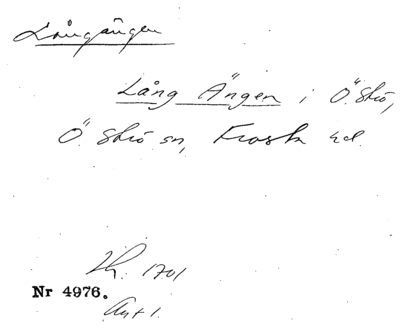 Långängen
Lång Ängen i Ö. Strö,
Ö. Strö sn, Frosta hd.
Lh. 1701
Nr 4976.
Avt 1.